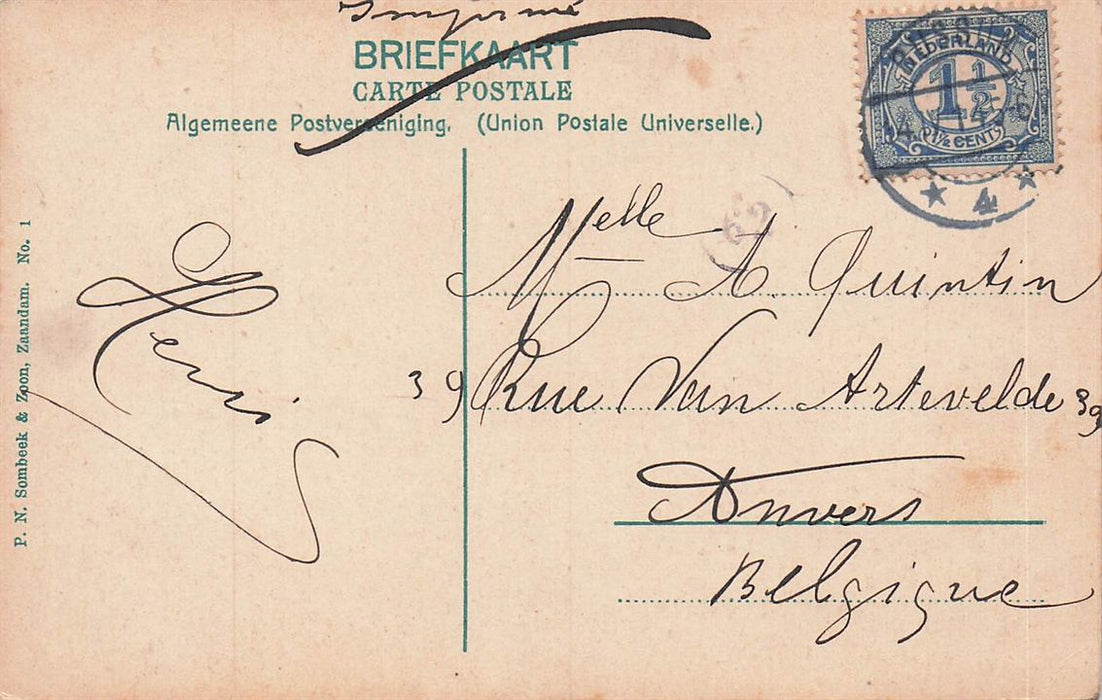 Imprimé
BRIEFKAART
CARTE POSTALE
Algemeene Postvereeniging. (Union Postale Universelle.)
NEDERLAND
1½
1½ CENT
4
62
Melle A. Quintin
39 Rue Van Artevelde 39
Anvers
Belgique
Henri
P. N. Sombeek & Zoon, Zaandam. No. 1